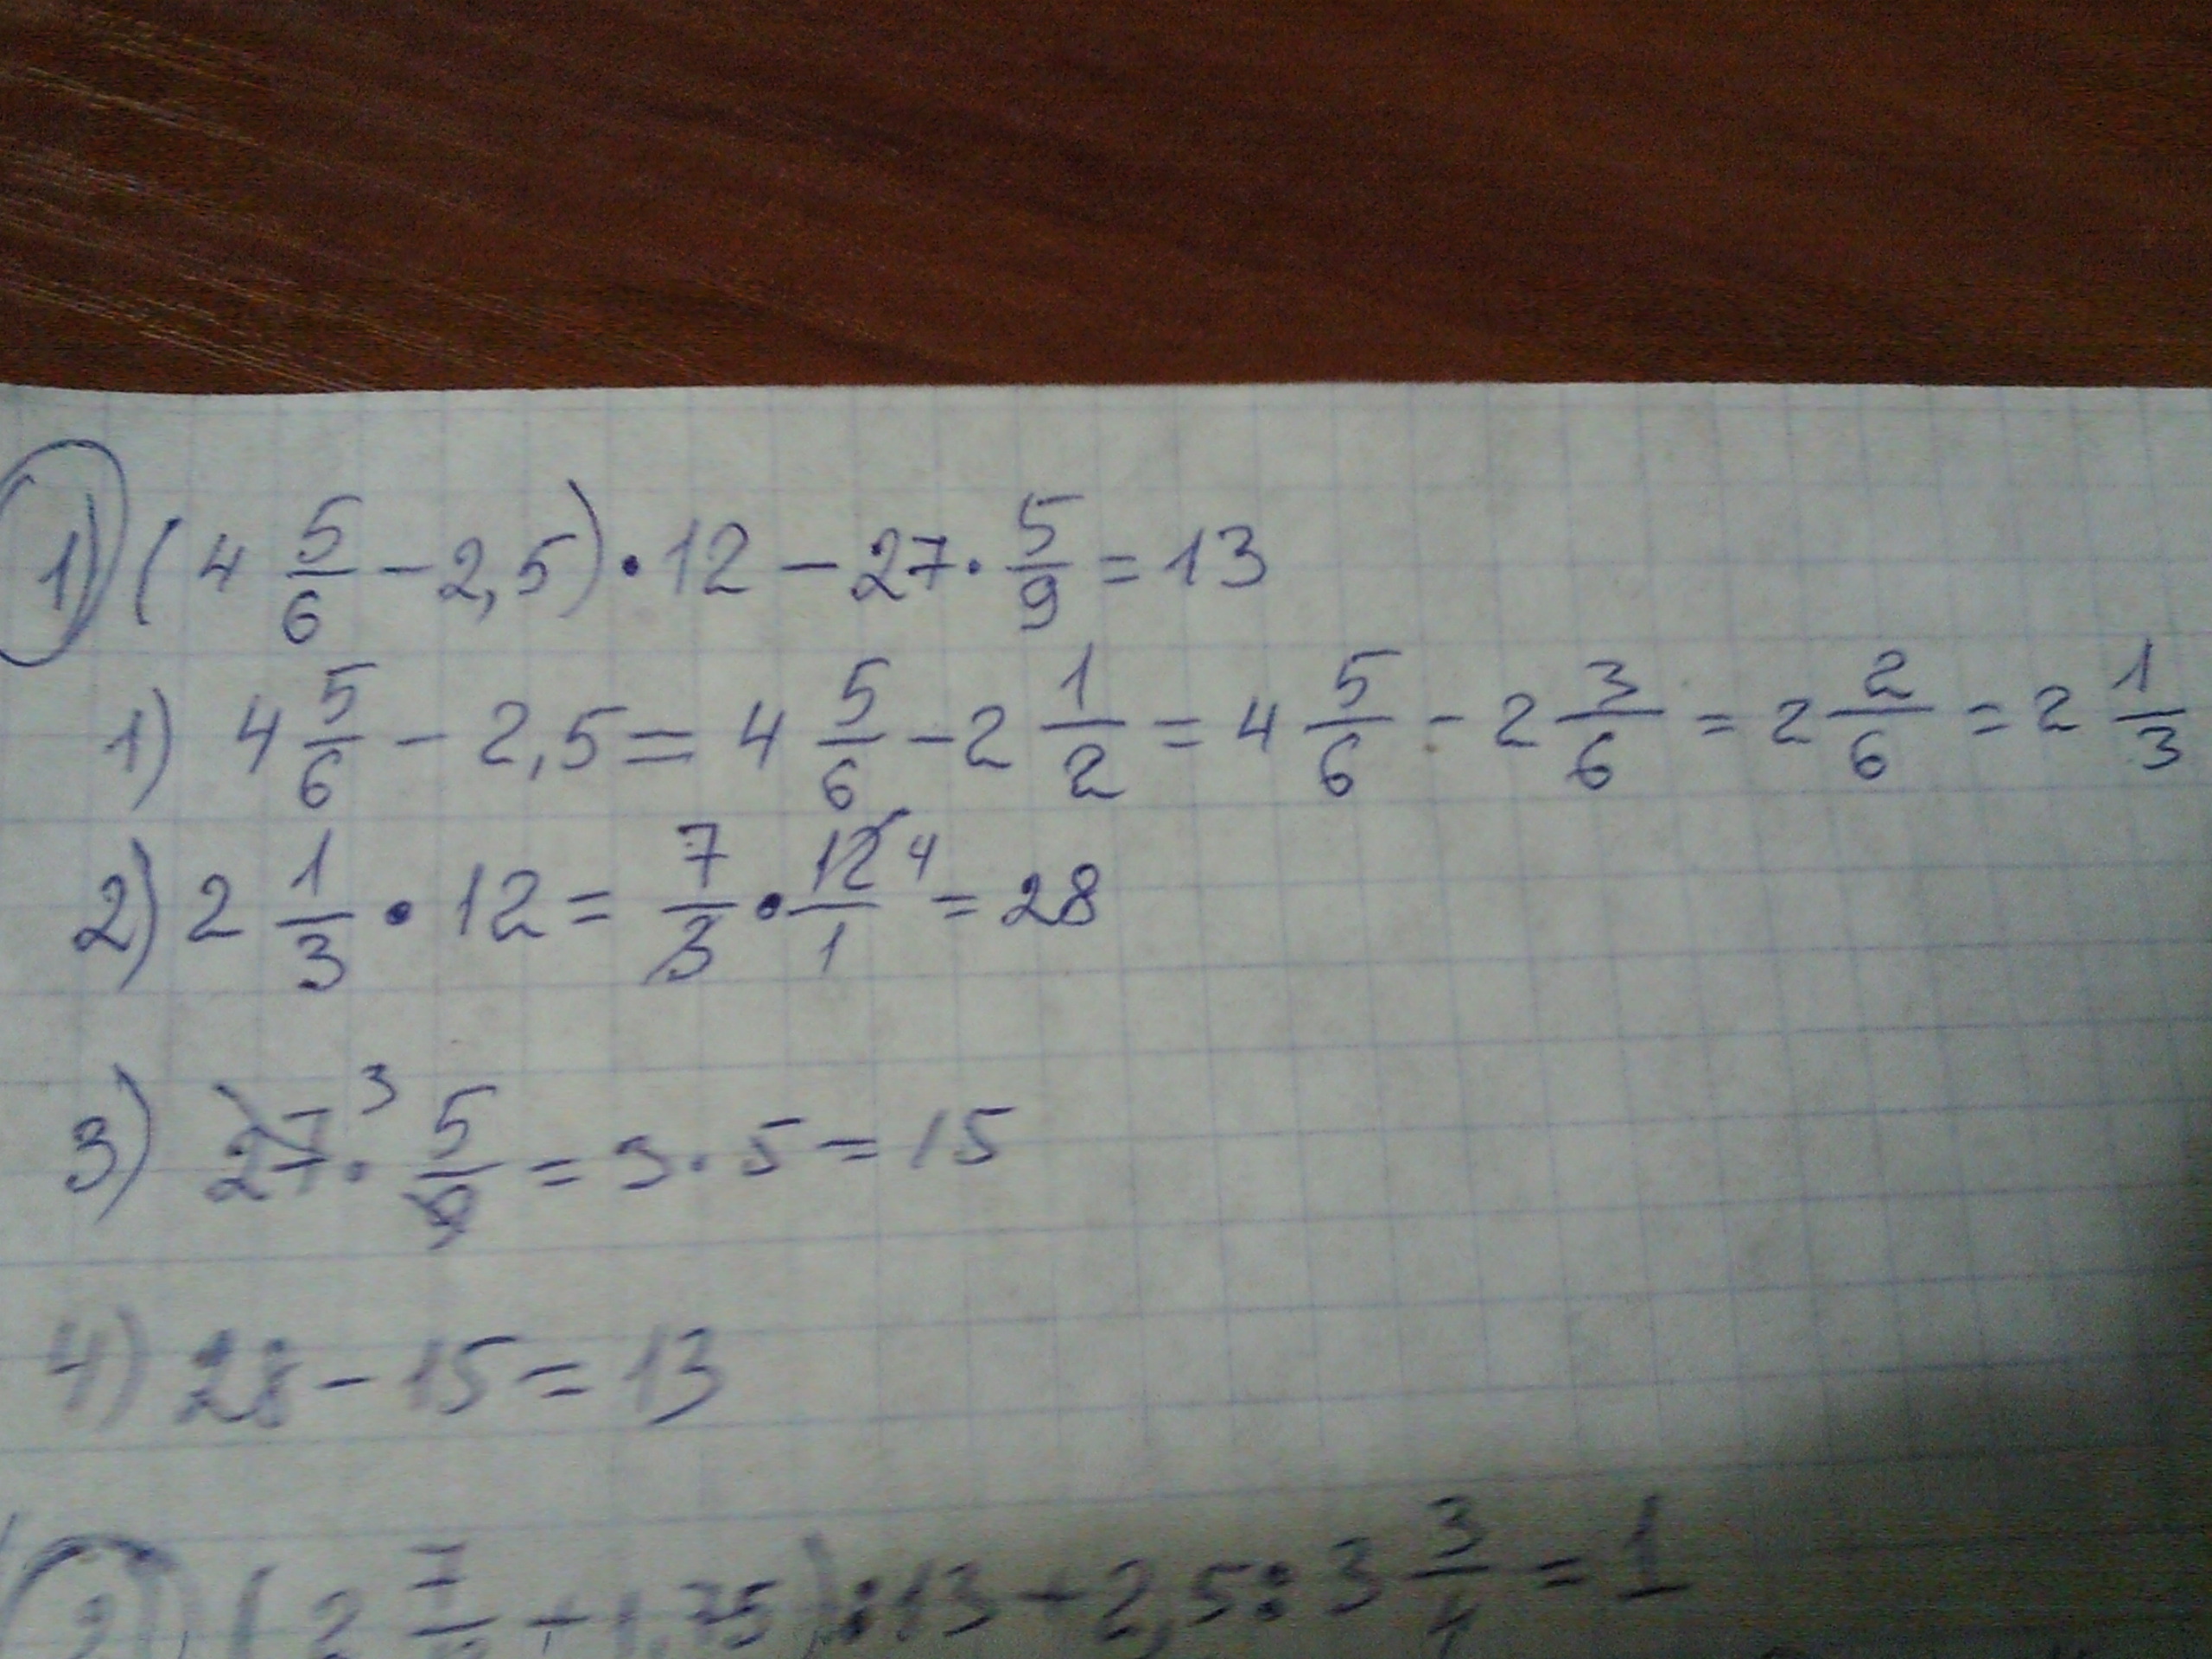 1) (4 5/6 - 2,5) · 12 - 27 · 5/9 = 13
1) 4 5/6 - 2,5 = 4 5/6 - 2 1/2 = 4 5/6 - 2 3/6 = 2 2/6 = 2 1/3
2) 2 1/3 · 12 = 7/3 · 12 4/1 = 28
3) 27 3 · 5/9 = 3 · 5 = 15
4) 28 - 15 = 13
2) (2 7/ + 1,75) : 13 + 2,5 : 3 3/4 = 1